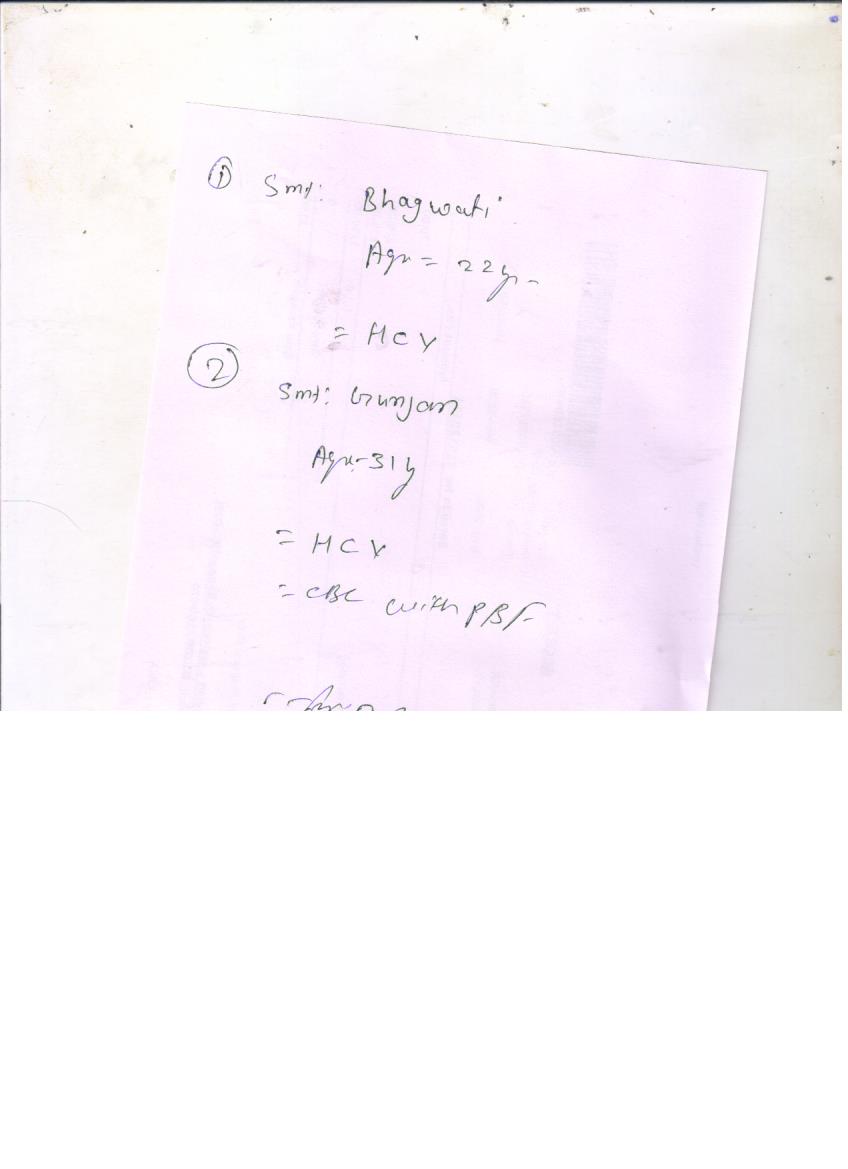 ① Smt: Bhagwati
Age = 22y-
= HCV
②
Smt: Gunjan
Age-31y
= HCV
= CBC with PBF